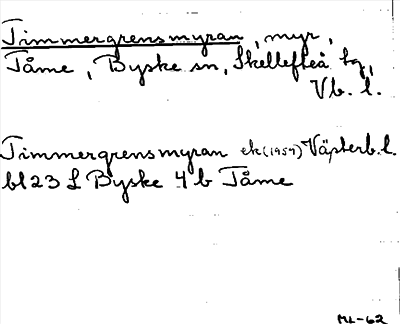 Timmergrensmyran, myr,
Tåme, Byske sn, Skellefteå tg,
Vb. l.
Timmergrensmyran ek (1959) Västerb. l.
bl 23 L Byske 4 b Tåme
ML-62